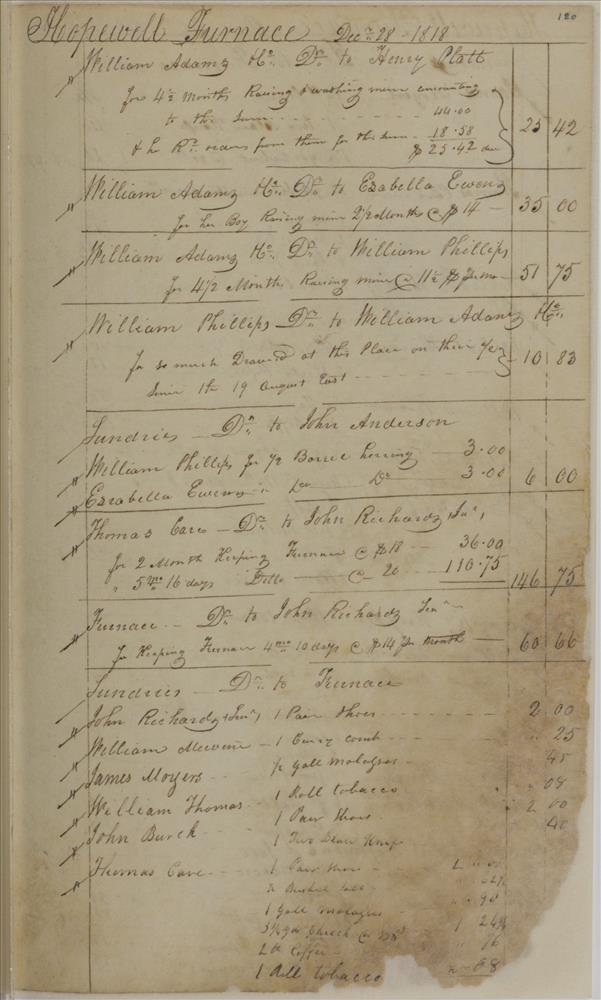 120
Hopewell Furnace Decr 28 - 1818
William Adams Ho. Dr. to Henry Platt
for 4½ months Raising & washing mine amounting
to this Sum 44.00
& he Rd. orders from them for this sum 18.58
$ 25.42 due 25 42
William Adams Ho. Dr. to Esabella Ewens
for her Boy Raising mine 2 1/2 Months @ $ 14 — 35 00
William Adams Ho. Dr. to William Phillips
for 4 1/2 Months Raising mine @ 11½ $ Per mo — 51 75
William Phillips Dr. to William Adams Ho.
for so much Drawed at this Place on their
Since the 19 August Last 10 83
Sundries — Dr. to John Anderson
William Phillips for 1/2 Barrel herring — 3.00
Esabella Ewens Do 3.00 6 00
Thomas Care — Dr. to John Richards Jur,
for 2 Month Keeping Furnace @ $18 — 36.00
" 5 mo 16 days Ditto — @ 20 — 110.75 146 75
Furnace — Dr. to John Richards Senr
for Keeping Furnace 4 mo 10 days @ $14 Per month — 60 66
Sundries — Dr. to Furnace
John Richards, 1 Pair Shoes 2 00
William 1 Curry comb " 25
James Moyers 1/2 Gall molasses 45
William Thomas 1 Roll tobacco " 08
John Burch 1 Pair Shoes 2 00
1 Two Blade Knife 40
Thomas Care 1 Pair Shoes 2 " 00
½ Bushel Salt
1 Gall Molasses " 90
yds Check @ 1 24
lb Coffee " 16
1 Roll tobacco " 08